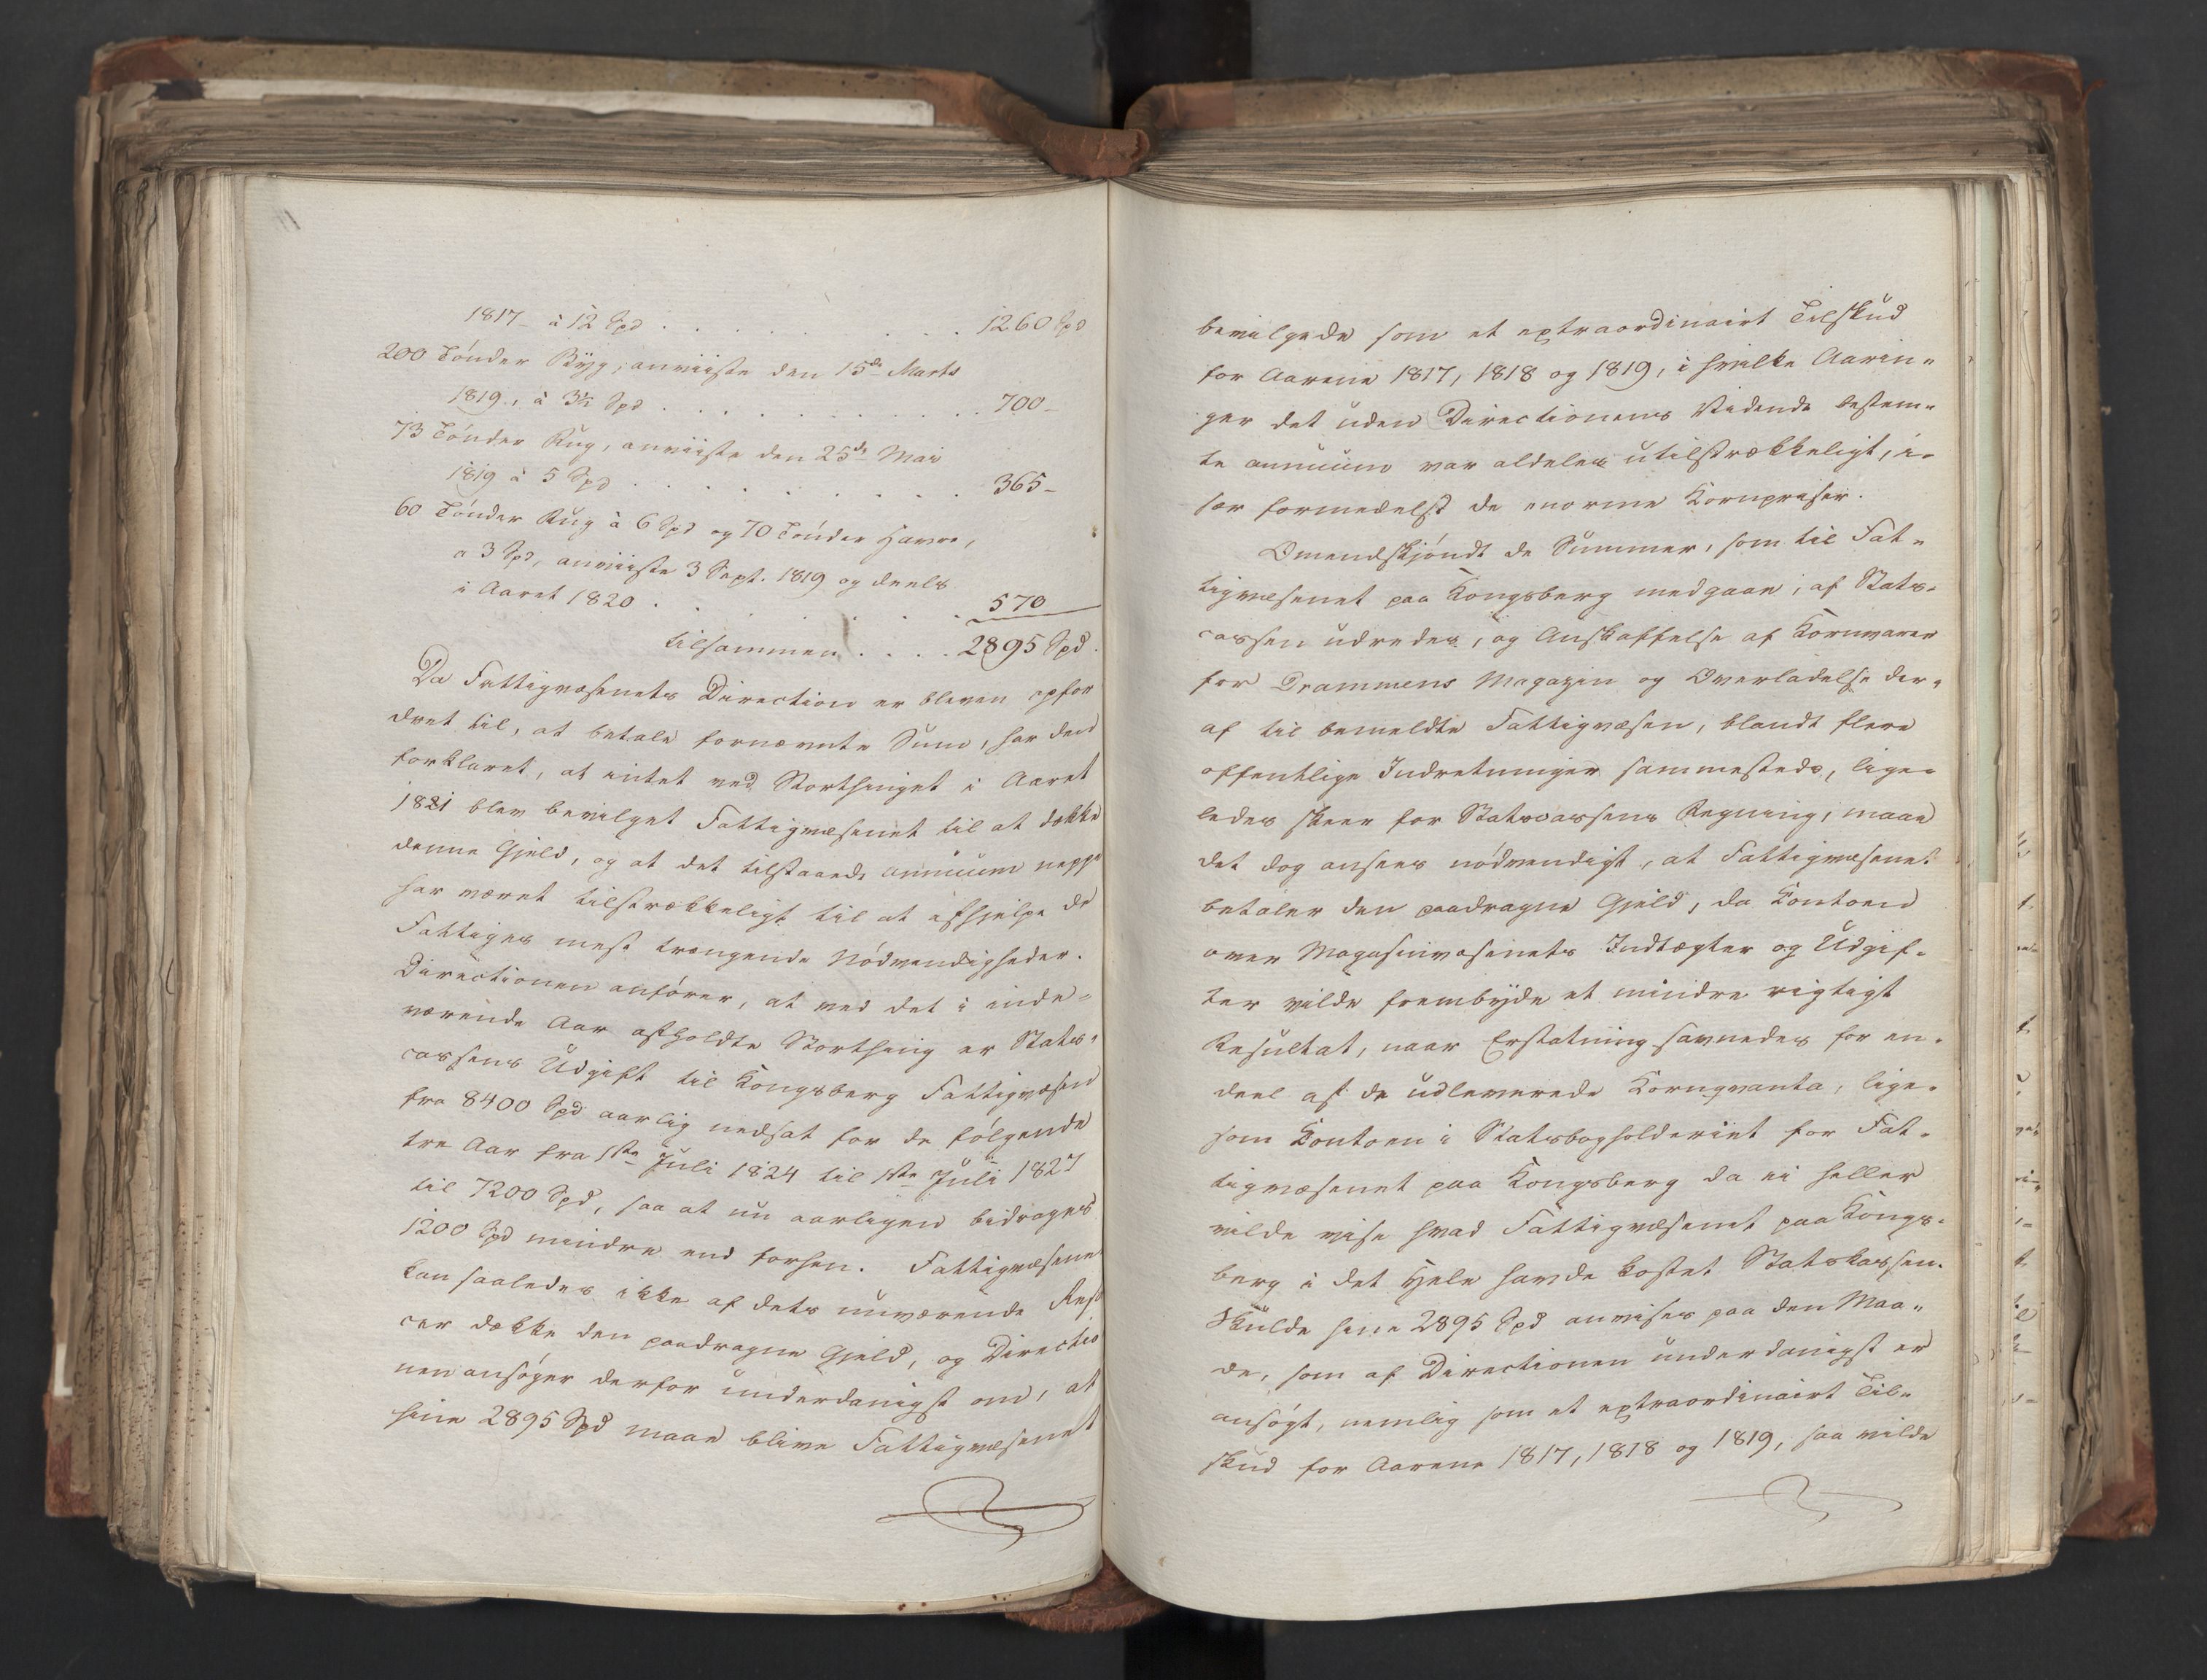 1817 - à 12 Spd . . . . . . . . . 1260 Spd
200 Tønder Byg, anviiste den 15de Marts
1819, à 3½ Spd . . . . . . . . . . 700 -
73 Tønder Rug, anviiste den 25de Mai
1819 à 5 Spd . . . . . . . . . . 365 -
60 Tønder Rug à 6 Spd og 70 Tønder Havre,
a 3 Spd, anviiste 3 Sept. 1819 og deels
i Aaret 1820 . . . . . . . 570
tilsammen . . . . 2895 Spd.
Da Fattigvæsenets Direction er bleven opfor
dret til, at betale fornævnte Sum, har den
forklaret, at intet ved Storthinget i Aaret
1821 blev bevilget Fattigvæsenet til at dække
denne Gjeld, og at det tilstaaede annuum neppe
har været tilstrækkeligt til at afhjelpe de
Fattiges mest trængende Nødvendigheder.
Directionen anfører, at ved det i inde-
værende Aar afholdte Storthing er Stats-
cassens Udgift til Kongsberg Fattigvæsen
fra 8400 Spd aarlig nedsat for de følgende
tre Aar fra 1ste Juli 1824 til 1ste Juli 1827
til 7200 Spd, saa at nu aarligen bidrages
1200 Spd mindre end forhen. Fattigvæsenet
kan saaledes ikke af dets nuværende Res
cer dække den paadragne Gjeld, og Directio
nen ansøger derfor underdanigst om, at
hine 2895 Spd maae blive Fattigvæsenet
bevilgede som et extraordinairt Tilskud
for Aarene 1817, 1818 og 1819, i hvilke Aarin-
ger det uden Directionens Vidende bestem-
te annuum var aldeles utilstrækkeligt, i-
sær formedelst de enorme Kornpriser.
Omendskjøndt de Summer, som til Fat-
tigvæsenet paa Kongsberg medgaae, af Stats-
cassen udredes, og Anskaffelse af Kornvarer
for Drammens Magazin og Overladelse der-
af til bemeldte Fattigvæsen, blandt flere
offentlige Indretninger sammesteds, lige-
ledes skeer for Statscassens Regning, maae
det dog ansees nødvendigt, at Fattigvæsenet
betaler den paadragne Gjeld, da Contoen
over Magasinvæsenets Indtægter og Udgif-
ter vilde frembyde et mindre rigtigt
Resultat, naar Erstatning savnedes for en-
deel af de udleverede Kornqvanta, lige-
som Contoen i Statsbogholderiet for Fat-
tigvæsenet paa Kongsberg da ei heller
vilde vise hvad Fattigvæsenet paa Kongs-
berg i det Hele havde kostet Statskassen.
Skulde hine 2895 Spd anvises paa den Maa-
de, som af Directionen underdanigst er
ansøgt, nemlig som et extraordinairt Til-
skud for Aarene 1817, 1818 og 1819, saa vilde